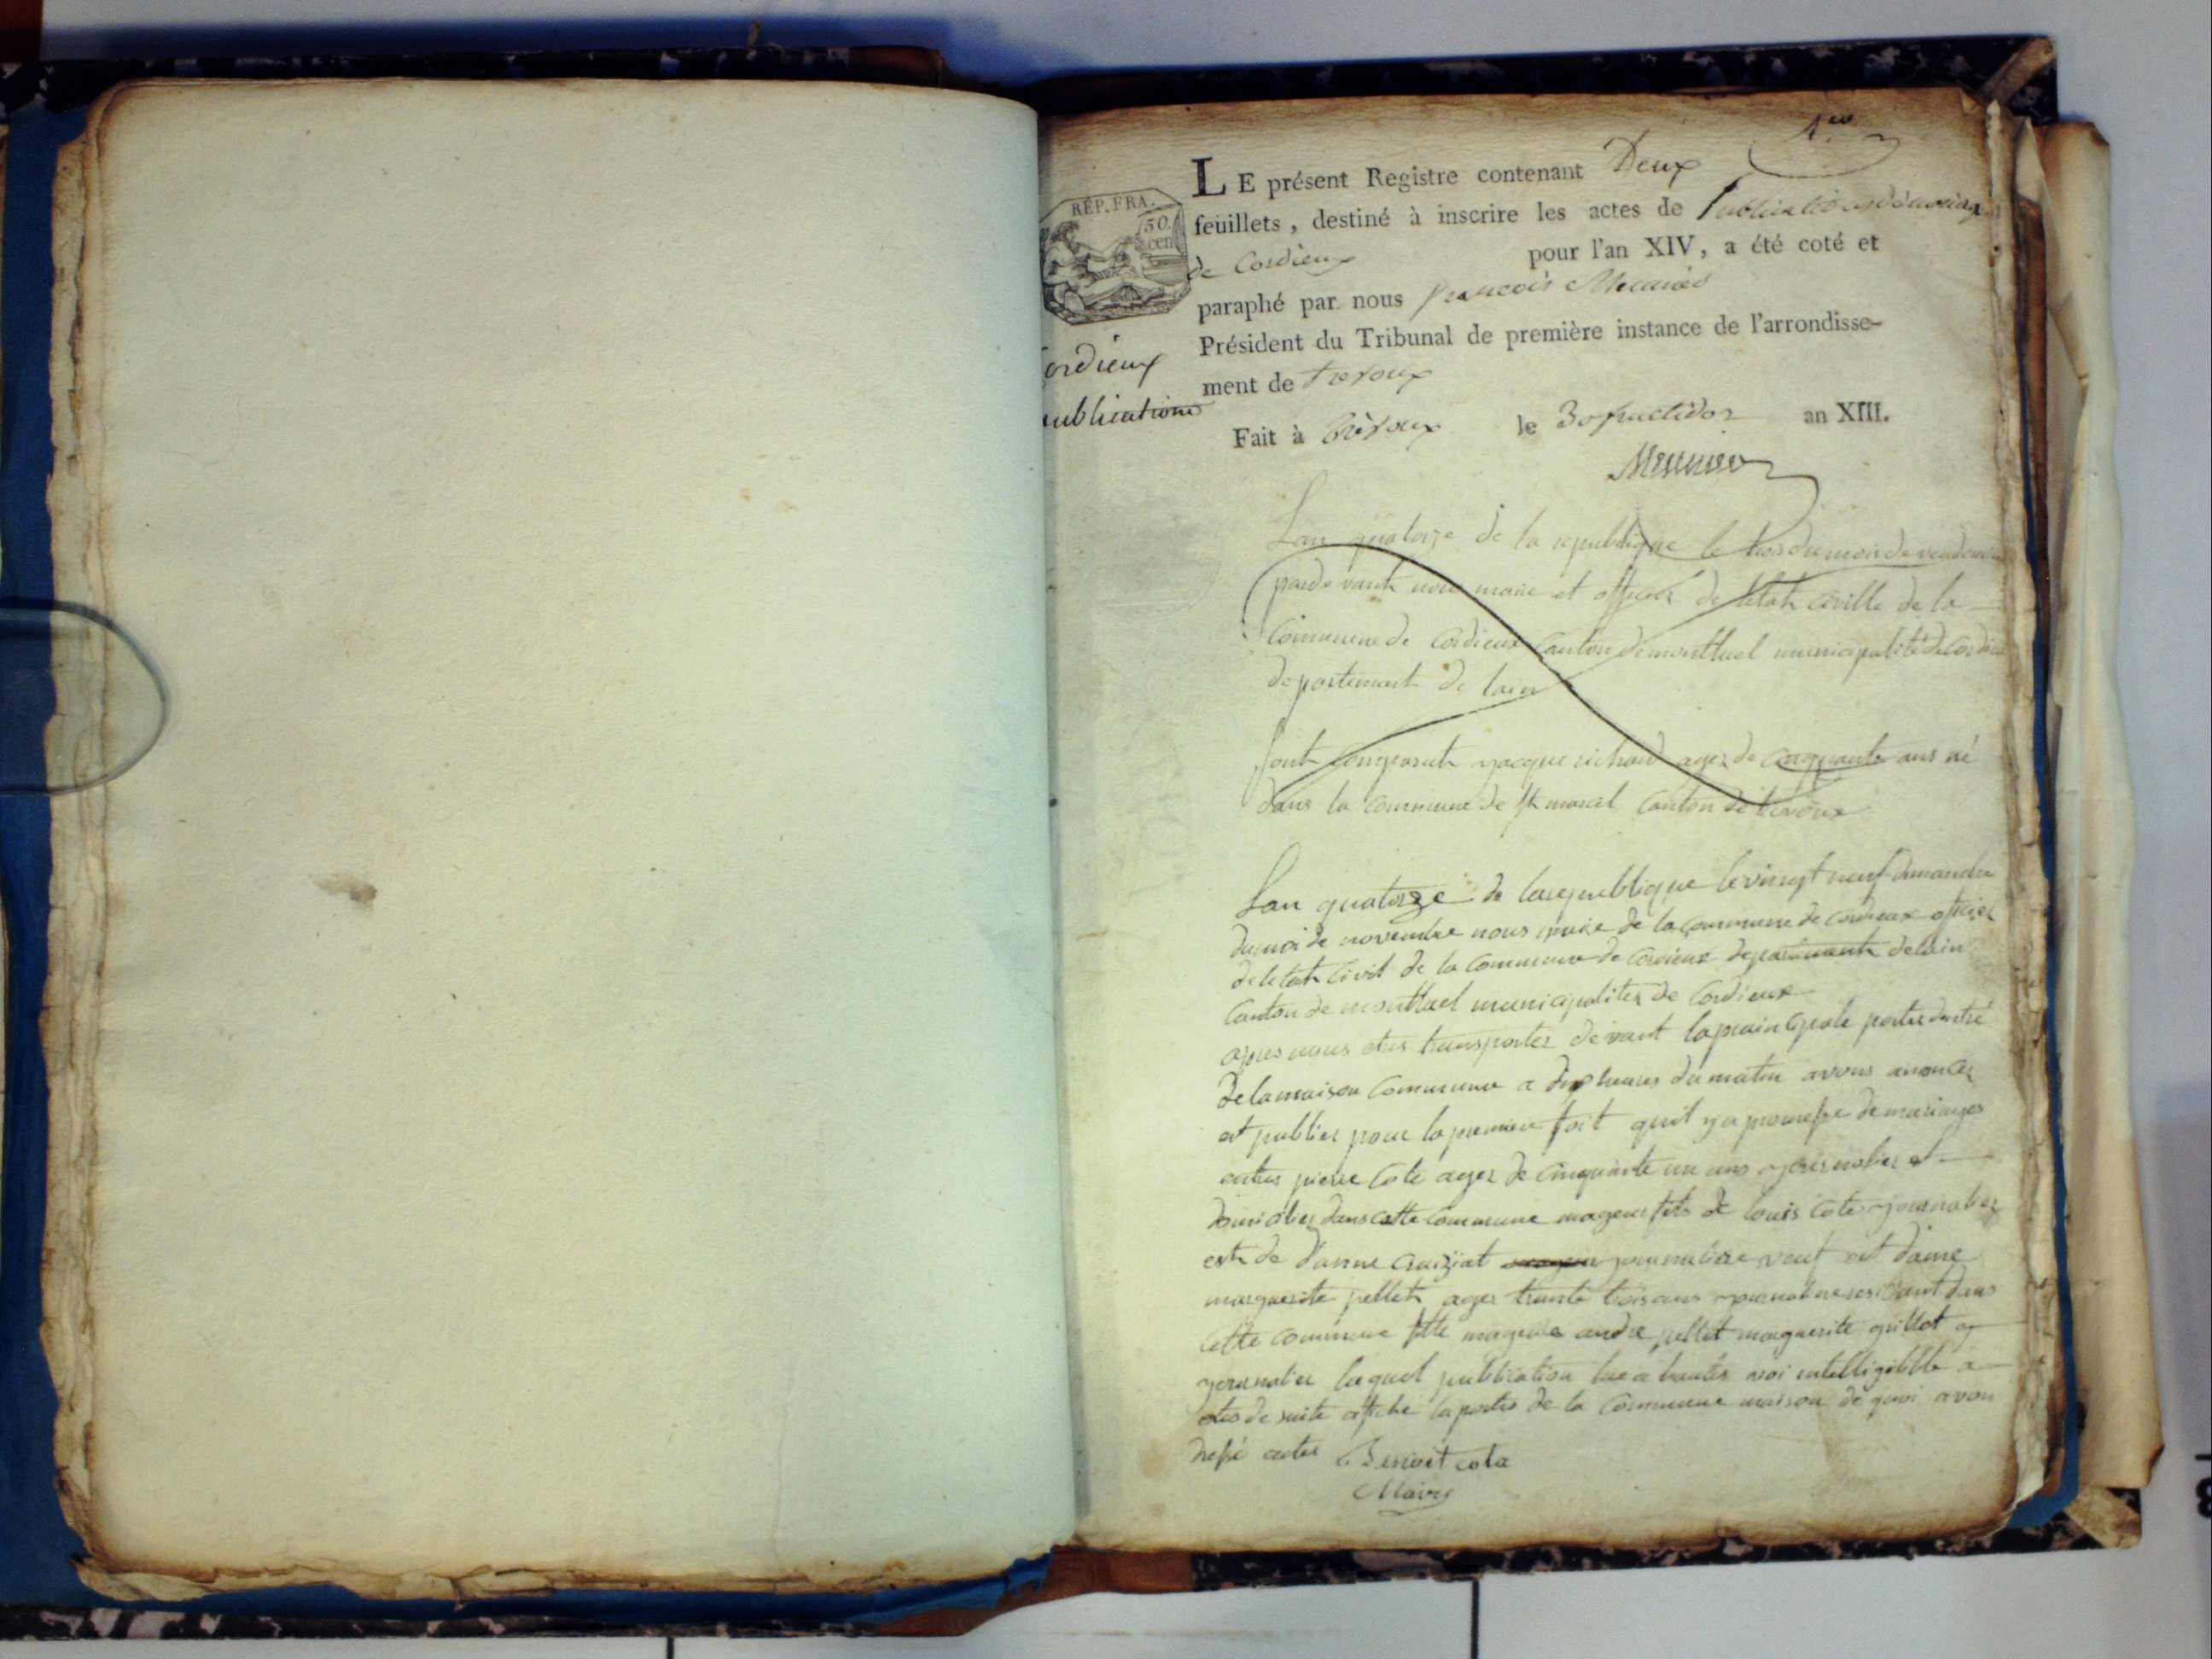 1er
LE présent Registre contenant Deux
feuillets, destiné à inscrire les actes de Publications de mariages
de Cordieux pour l'an XIV, a été coté et
paraphé par nous françois
Président du Tribunal de première instance de l'arrondisse-
ment de trevoux
Fait à Trèvoux le 30 fructidor an XIII.
RÉP. FRA.
50.
cen
ordieux
ublications
Lan quatorze de la republique le trois du mois de vendemi
parde vant nous maire et officier de letat civille de la
Commune de Cordieux Canton de montluel municipalité de Cordieu
departement de lain
Sont Comparut jacque richard ager de cinquante ans né
dans la Commune de St marcel Canton de trevoux
Lan quatorze de larepubligue le vinngt neuf
dumoi de novembre nous maire de la Commune de Cordieux officier
de letat Civil de la Commune de Cordieux departement delain
Canton de montluel municipalitez de Cordieux
apres nous etes transporter devant laprincipale porte dentré
De la maison Commune a dix heures du matin avons anoncer
et publier pour la premiere foit quil y a promesse de mariages
entres pierre Cote ager de Cinquante un ans journalier et
domicilier dans cette Commune mageur fils de louis Cote journalier
et de danne Cruiziat journaliere veuf et dame
marguerite pellet ager trante trois ans dans
Cette Commune fille mageure andre pellet marguerite guillot
journalier laquel publication lue a hautes voi intelligiblle a
etes de suite afiche la portes de la Commune maison de quoi avon
dressé actes Benoit cota
Maire